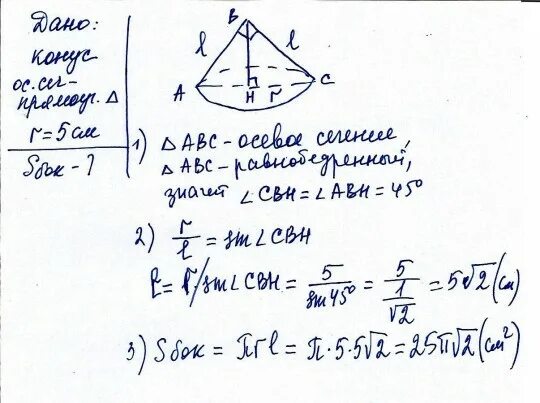 Дано:
конус
ос. сеч-
прямоуг. Δ
r = 5 см
Sбок - ?
B
l
l
A
H
r
C
1) Δ ABC - осевое сечение,
Δ ABC - равнобедренный,
значит ∠CBH = ∠ABH = 45°
2) r/l = sin∠CBH
l = r/sin∠CBH = 5/sin45° = 5/(1/√2) = 5√2 (см)
3) Sбок = πrl = π · 5 · 5√2 = 25π√2 (см²)